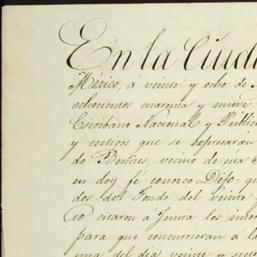 En la Ciuda
México, á veinte y ocho de
ochocientos cuarenta y nueve
Escribano Nacional y Públic
y testigos que se espresarán
de Benites, vecino de esa
en doy fé conosco Dijo: qu
dos del Fondo del veinte
citaron á Junta los
para que concurrieran á la
una del dia veinte y